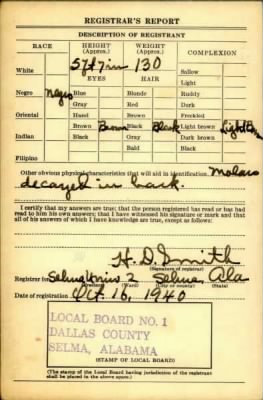 REGISTRAR'S REPORT
DESCRIPTION OF REGISTRANT
RACE HEIGHT (Approx.) WEIGHT (Approx.) COMPLEXION
White 5ft 7in 130 Sallow
EYES HAIR Light
Negro Negro Blue Blonde Ruddy
Gray Red Dark
Oriental Hazel Brown Freckled
Brown Brown Black Black Light brown Light Brown
Indian Black Gray Dark brown
Bald Black
Filipino
Other obvious physical characteristics that will aid in identification Molars
decayed in back.
I certify that my answers are true; that the person registered has read or has had
read to him his own answers; that I have witnessed his signature or mark and that
all of his answers of which I have knowledge are true, except as follows:
H. D. Smith
(Signature of registrar)
Registrar for Selma 2 Selma, Ala
(Precinct) (Ward) (City or county) (State)
Date of registration Oct. 16, 1940
LOCAL BOARD NO. 1
DALLAS COUNTY
SELMA, ALABAMA
(STAMP OF LOCAL BOARD)
(The stamp of the Local Board having jurisdiction of the registrant
shall be placed in the above space.)